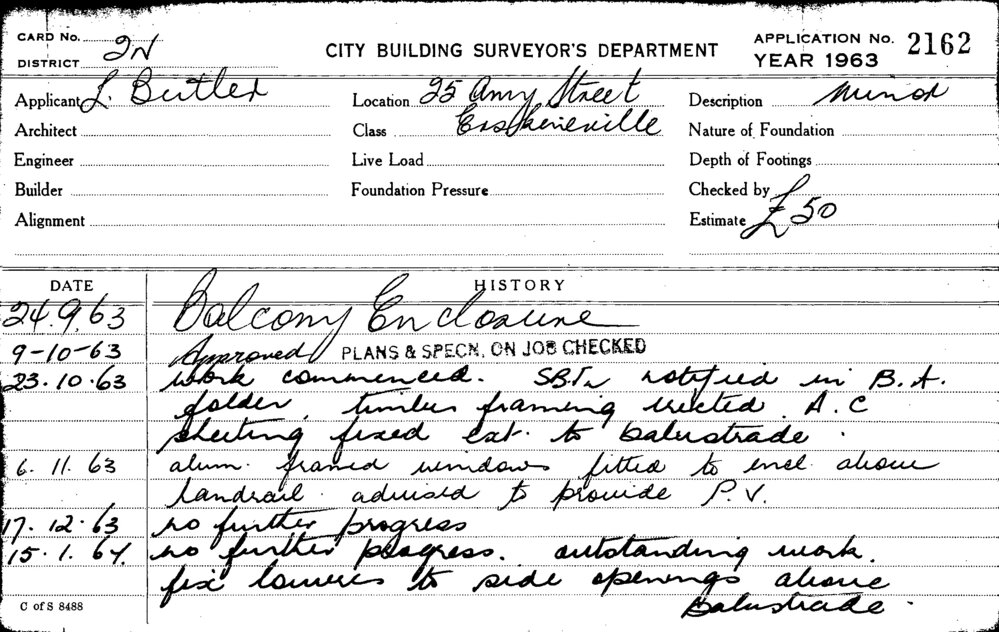 CARD No.
DISTRICT 2N
CITY BUILDING SURVEYOR'S DEPARTMENT
APPLICATION No. 2162
YEAR 1963
Applicant L. Butler
Location 25 Amy Street
Description Minor
Architect
Class Erskineville
Nature of Foundation
Engineer
Live Load
Depth of Footings
Builder
Foundation Pressure
Checked by
Alignment
Estimate £50
DATE
HISTORY
24.9.63 Balcony Enclosure
9-10-63 Approved PLANS & SPECN. ON JOB CHECKED
23.10.63 work commenced. notified in B.A.
folder, timber framing erected. A.C
sheeting fixed ext. to balustrade.
6.11.63 alum. framed windows fitted to encl. above
handrail. advised to provide P.V.
17.12.63 no further progress
15.1.64. no further progress. outstanding work.
fix louvres to side openings above
balustrade.
C of S 8488